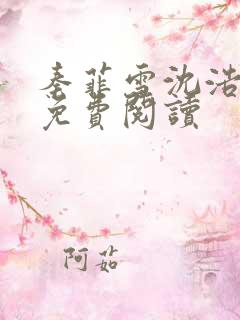 秦菲雪沈浩
免費閱讀
阿茹